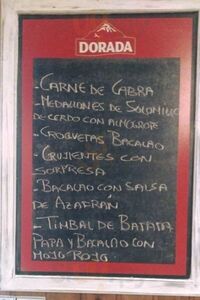 DORADA
- CARNE DE CABRA
- MEDALLONES DE SOLOMILLO
DE CERDO CON ALMOGROTE
- CROQUETAS BACALAO
- CRUJIENTES CON
SORPRESA
- BACALAO CON SALSA
DE AZAFRÁN
- TIMBAL DE BATATA
PAPA Y BACALAO CON
MOJO ROJO